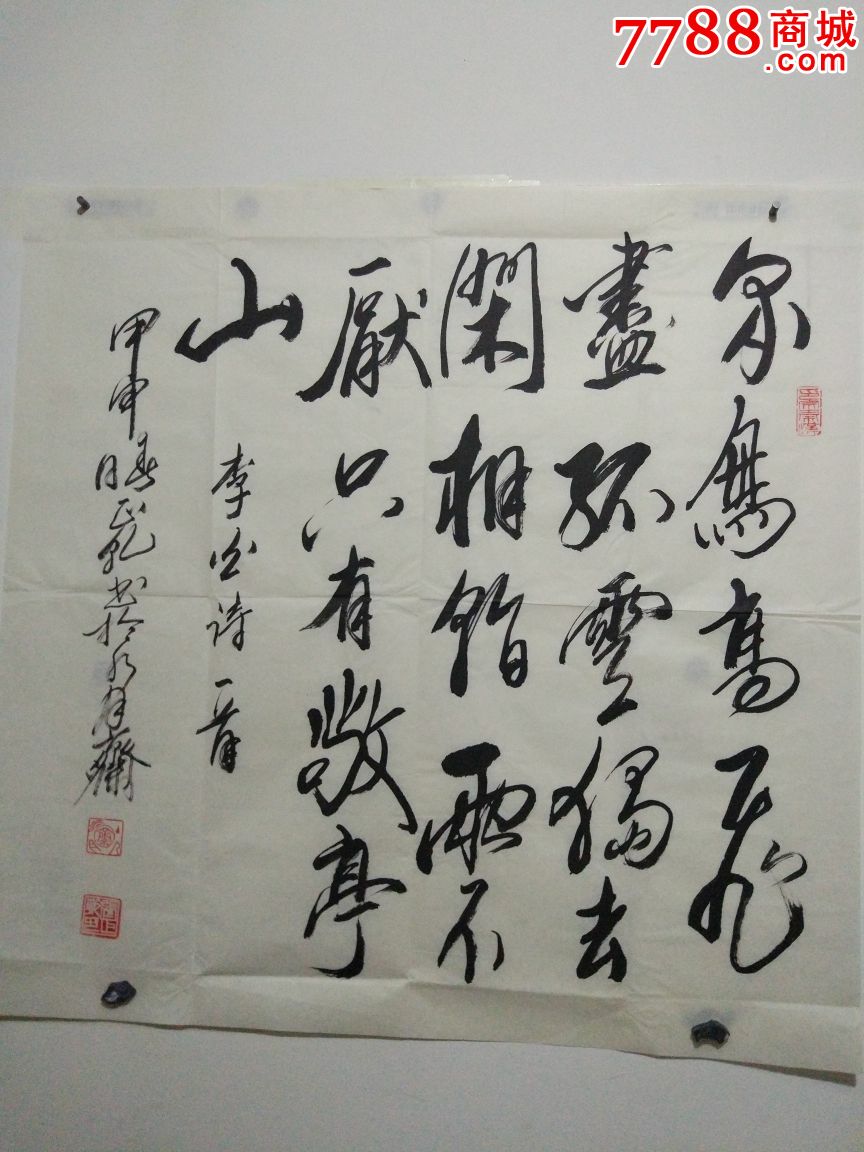 7788商城
.com
衆鳥高飛
盡孤雲獨去
閑相看兩不
厭只有敬亭
山
李白诗一首
甲申春月 书於 齋